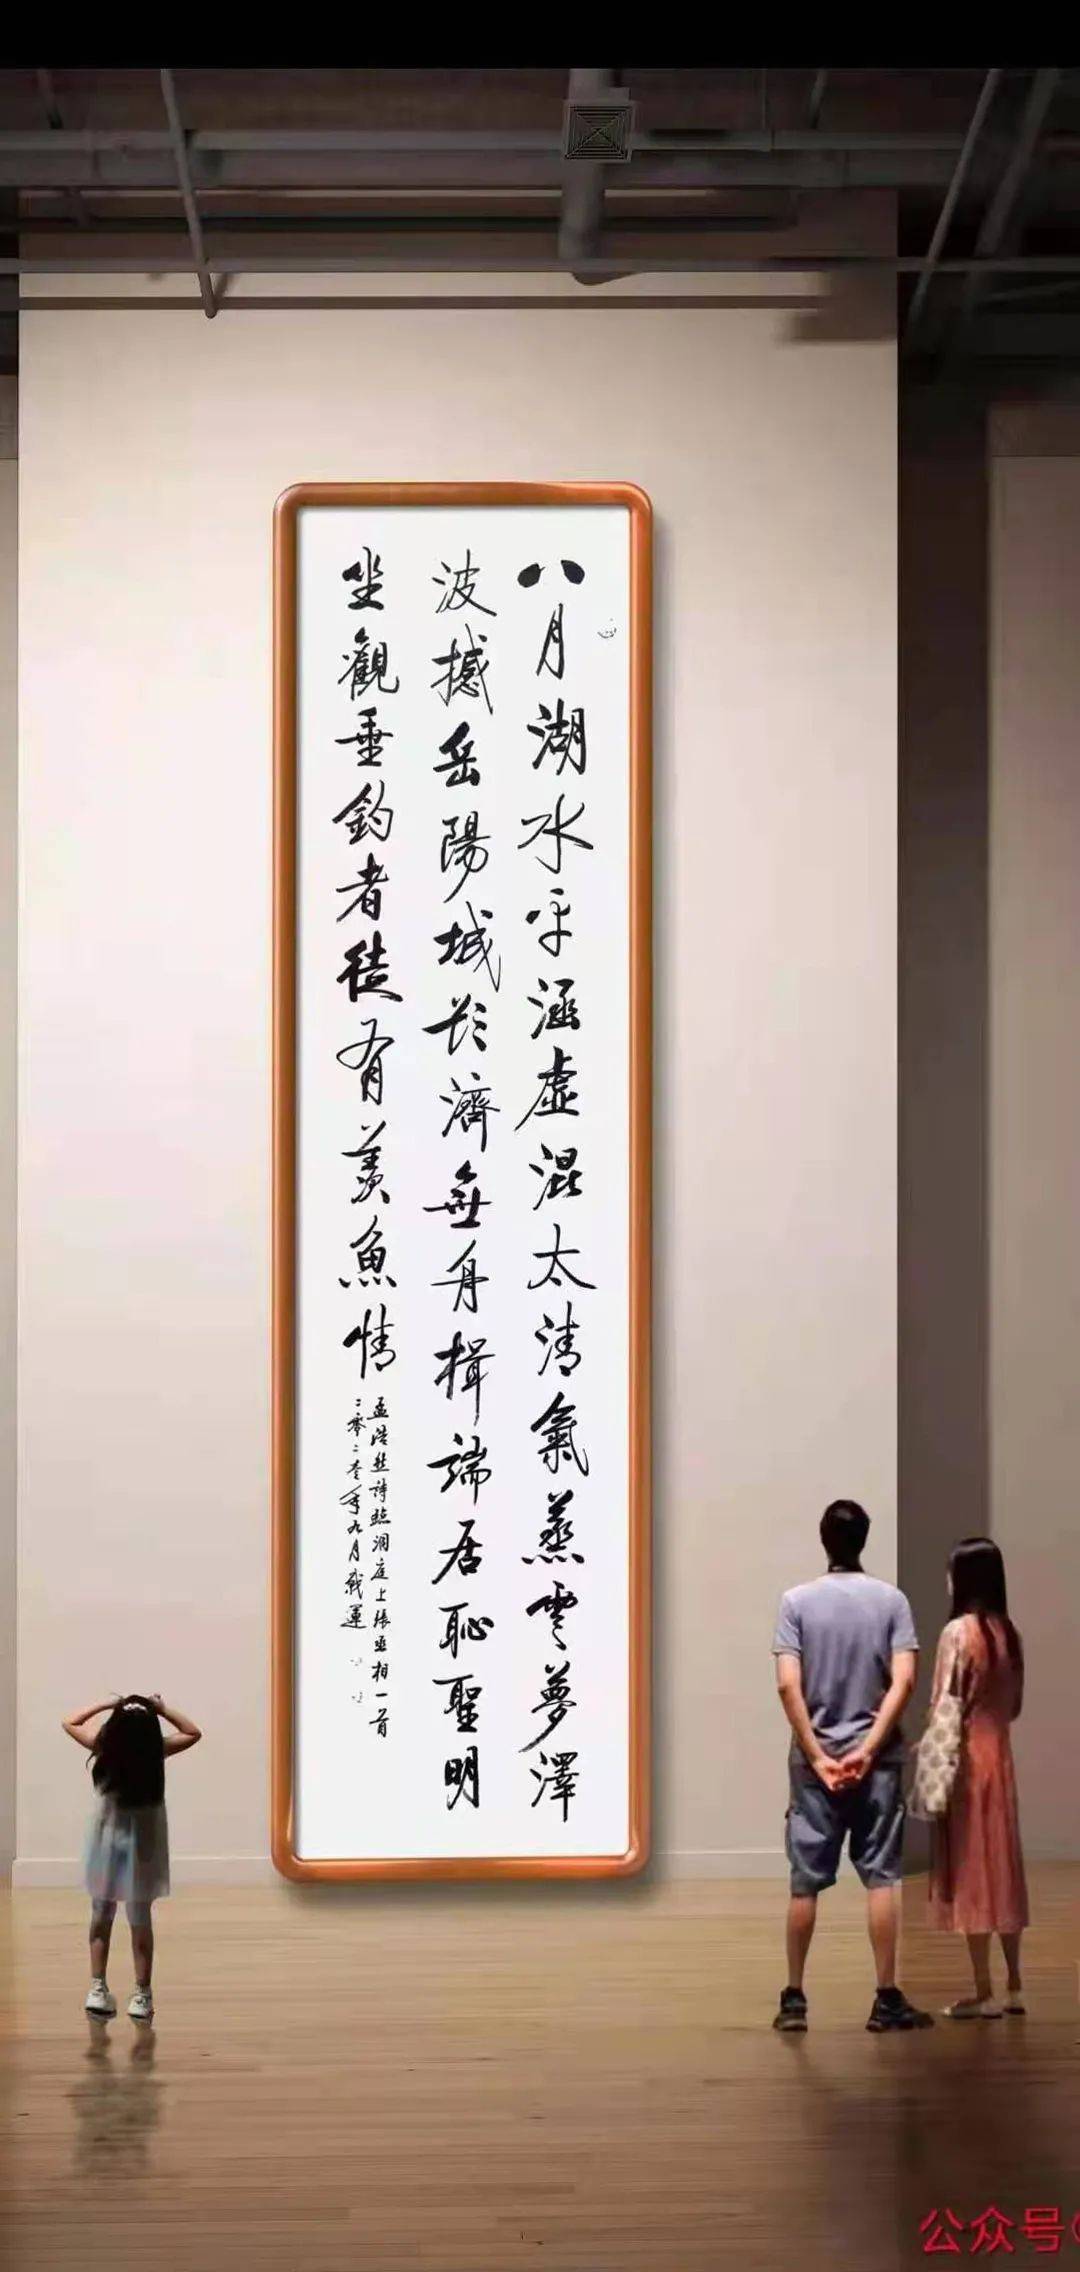 八月湖水平涵虚混太清氣蒸雲夢澤
波撼岳陽城欲濟無舟楫端居恥聖明
坐觀垂釣者徒有羡魚情
孟浩然詩臨洞庭上張丞相一首
二零二年九月
公众号